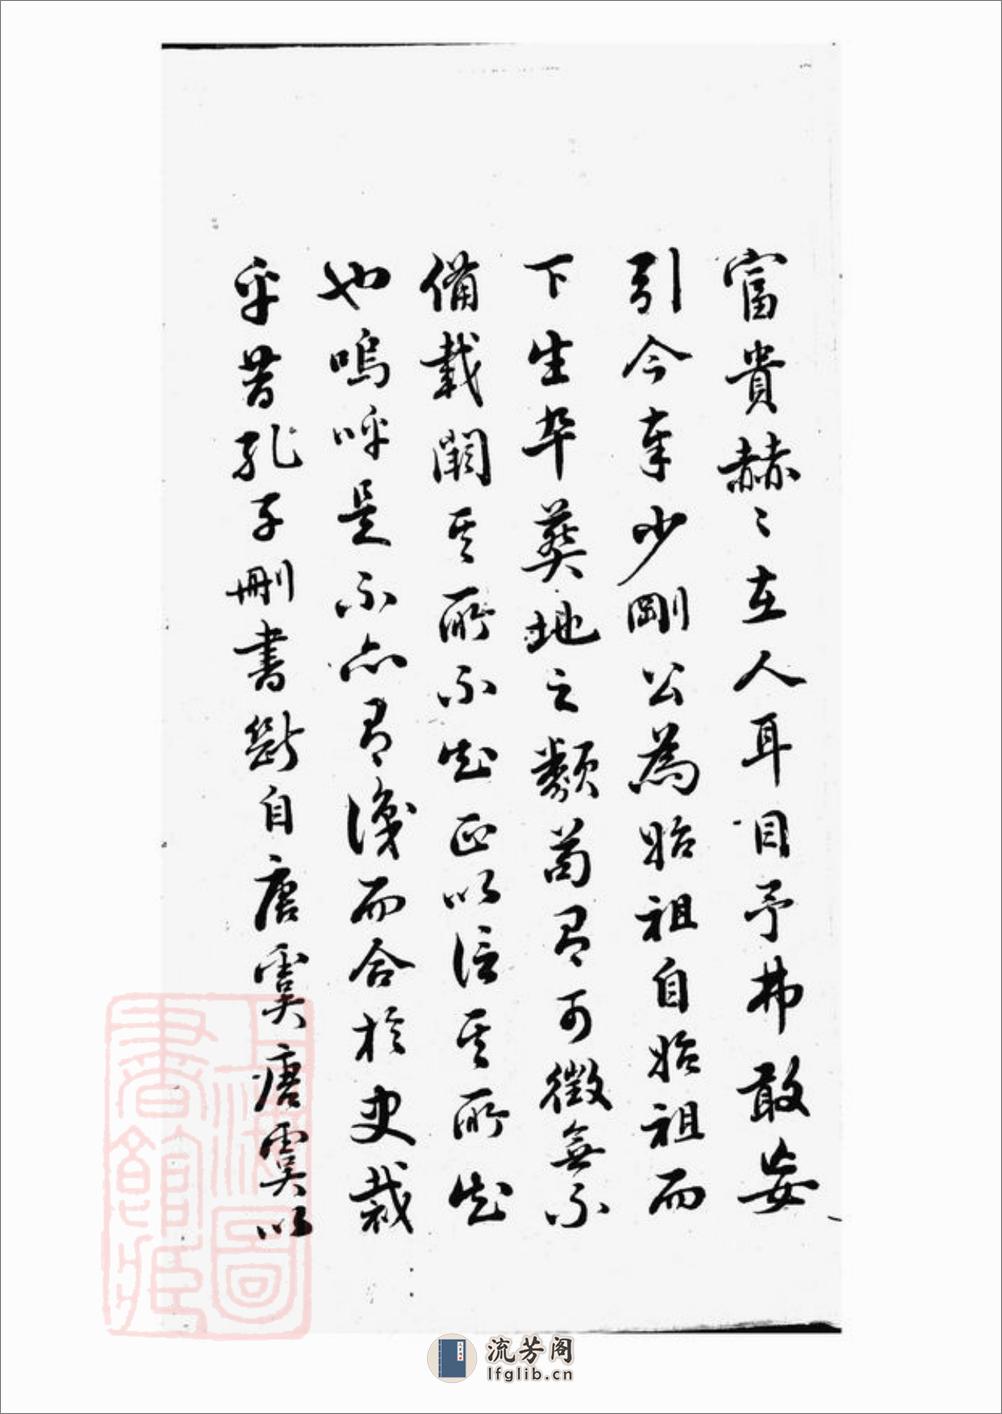 富貴赫〻在人耳目予弗敢妄
引今奉少剛公為始祖自始祖而
下生卒葬地之類苟有可徵無不
備載闕其所不知正以信其所知
也嗚呼是不亦有識而合於史裁
乎昔孔子刪書斷自唐虞唐虞以
上海圖
書館藏
流芳阁
lfglib.cn